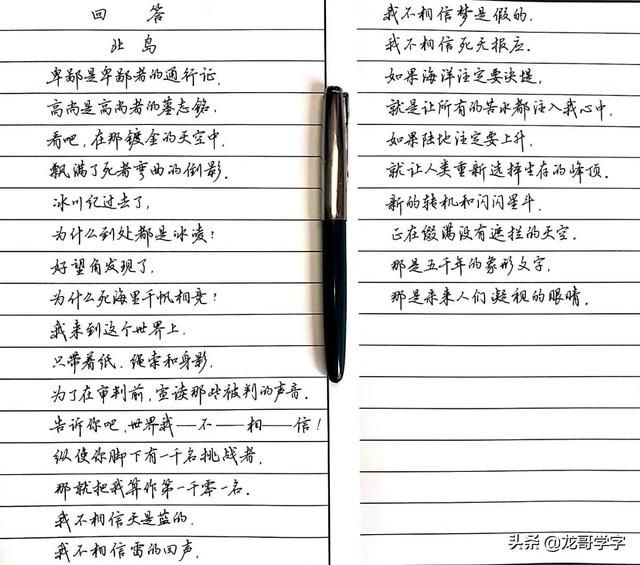 回 答
北 岛
卑鄙是卑鄙者的通行证,
高尚是高尚者的墓志铭.
看吧,在那镀金的天空中,
飘满了死者弯曲的倒影.
冰川纪过去了,
为什么到处都是冰凌?
好望角发现了,
为什么死海里千帆相竞?
我来到这个世界上,
只带着纸、绳索和身影,
为了在审判前,宣读那些被判的声音.
告诉你吧,世界我—不—相—信!
纵使你脚下有一千名挑战者,
那就把我算作第一千零一名.
我不相信天是蓝的.
我不相信雷的回声,
我不相信梦是假的.
我不相信死无报应.
如果海洋注定要决堤,
就是让所有的苦水都注入我心中.
如果陆地注定要上升,
就让人类重新选择生存的峰顶.
新的转机和闪闪星斗.
正在缀满没有遮拦的天空.
那是五千年的象形文字,
那是未来人们凝视的眼睛.
头条 @龙哥学字